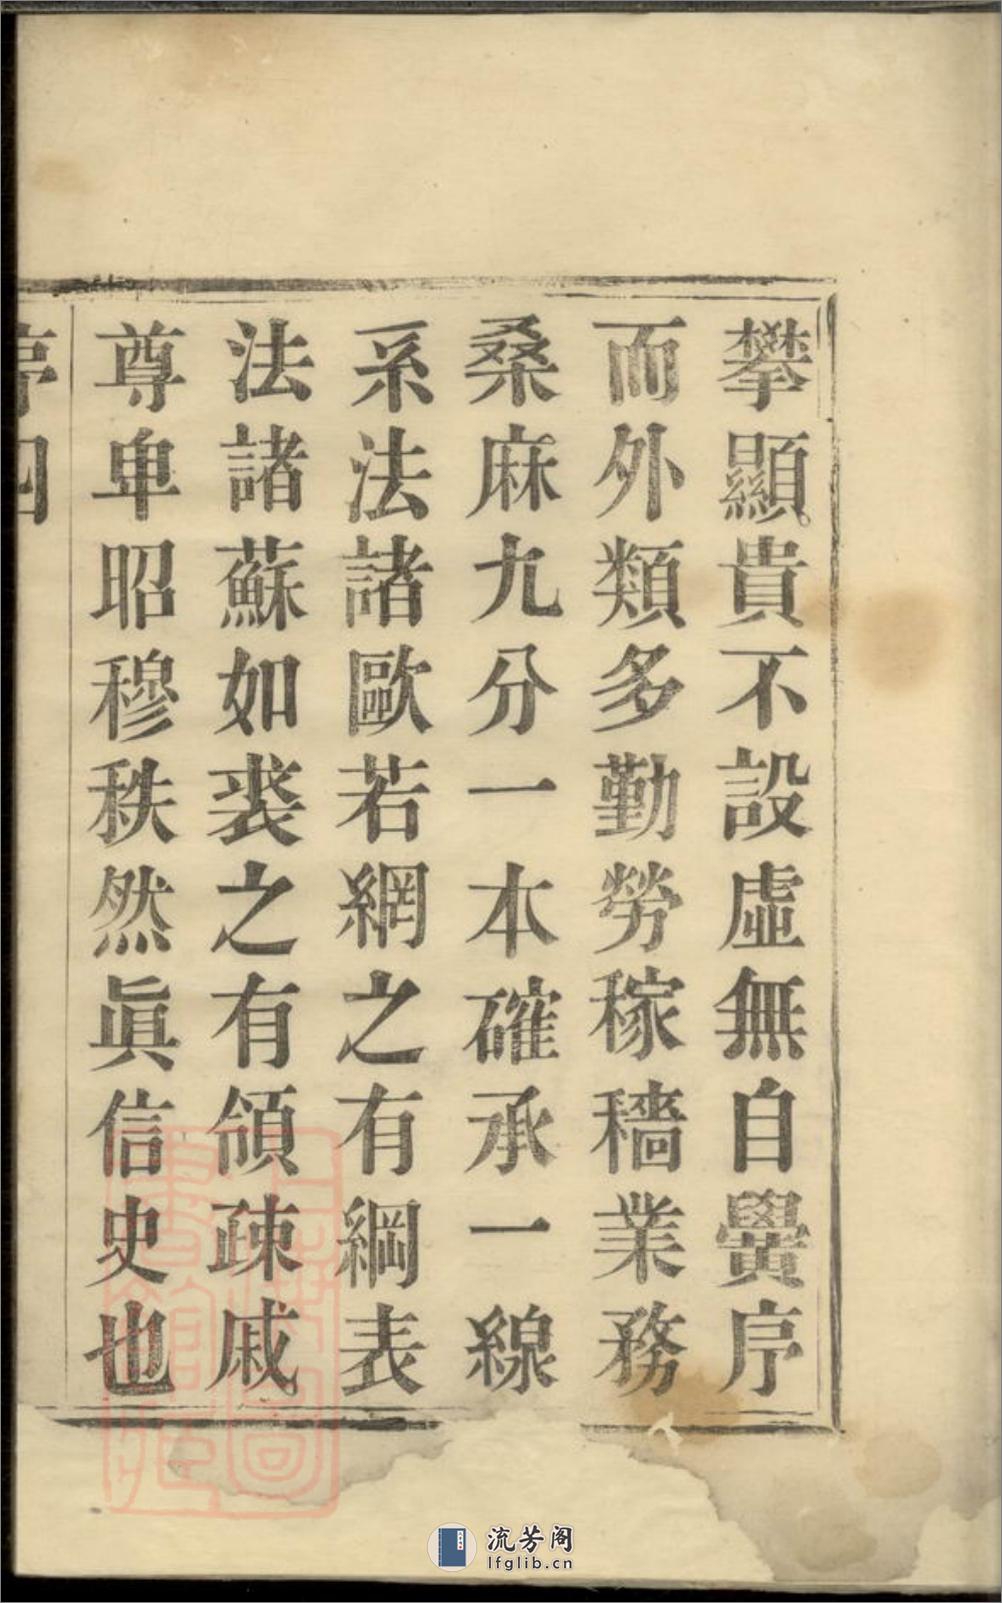 攀顯貴不設虛無自黌序
而外類多勤勞稼穡業務
桑麻九分一本確承一線
系法諸歐若網之有綱表
法諸蘇如裘之有領疎戚
尊卑昭穆秩然眞信史也
序四
上海圖書館藏
流芳阁
lfglib.cn